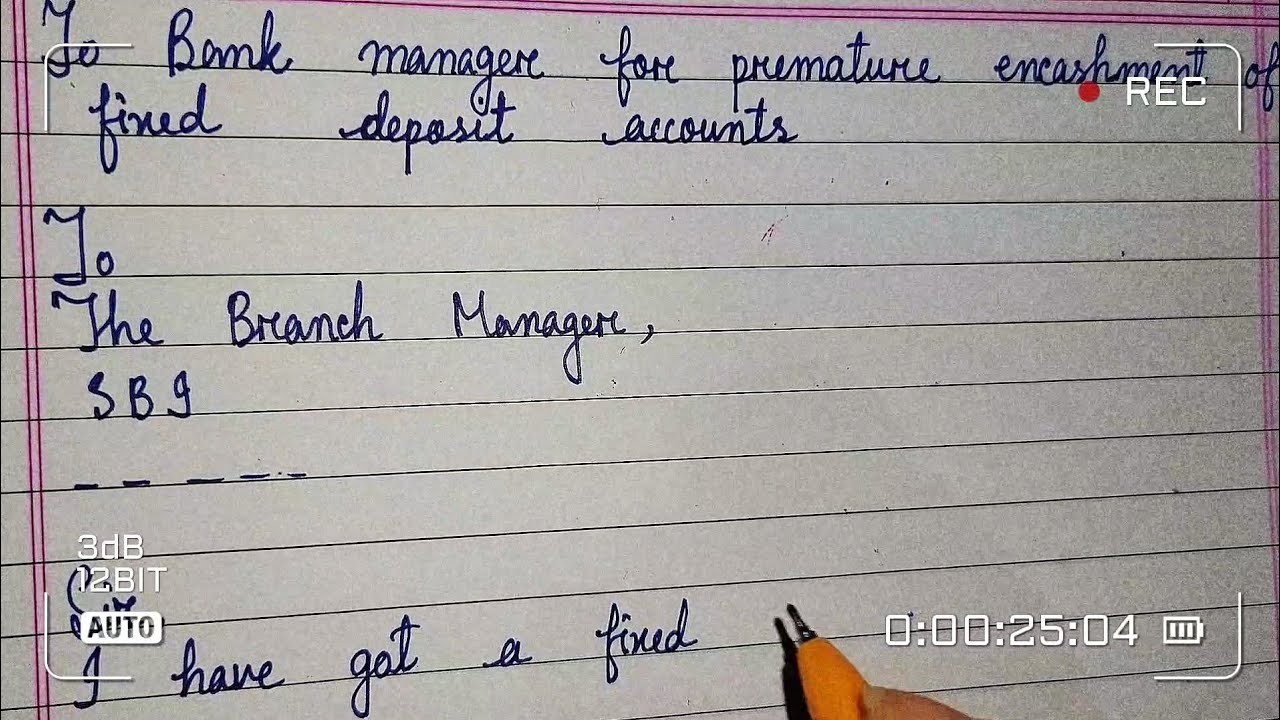 To Bank manager for premature encashment of
fixed deposit accounts
REC
To
The Branch Manager,
SBI
_ _ _ _ _
3dB
12BIT
Sir
AUTO
0:00:25:04
I have got a fixed